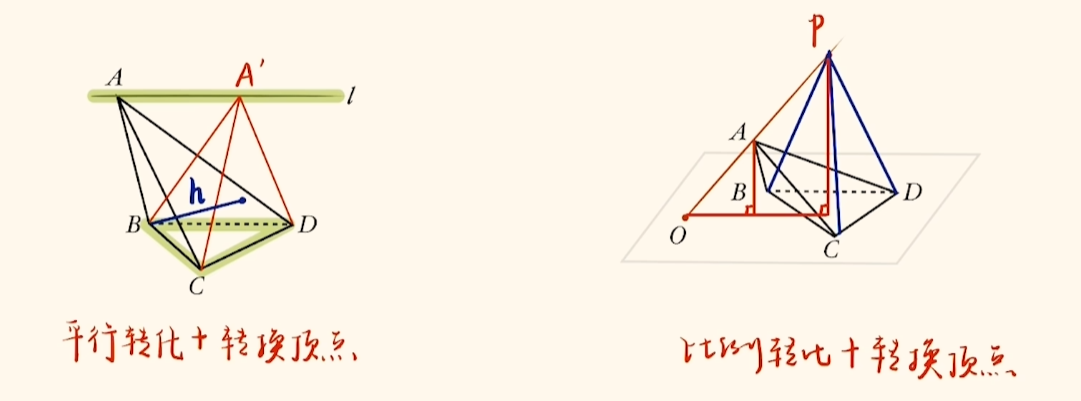 A A' l
h
B D
C
平行转化+转换顶点
P
A
B D
O C
比例转化+转换顶点